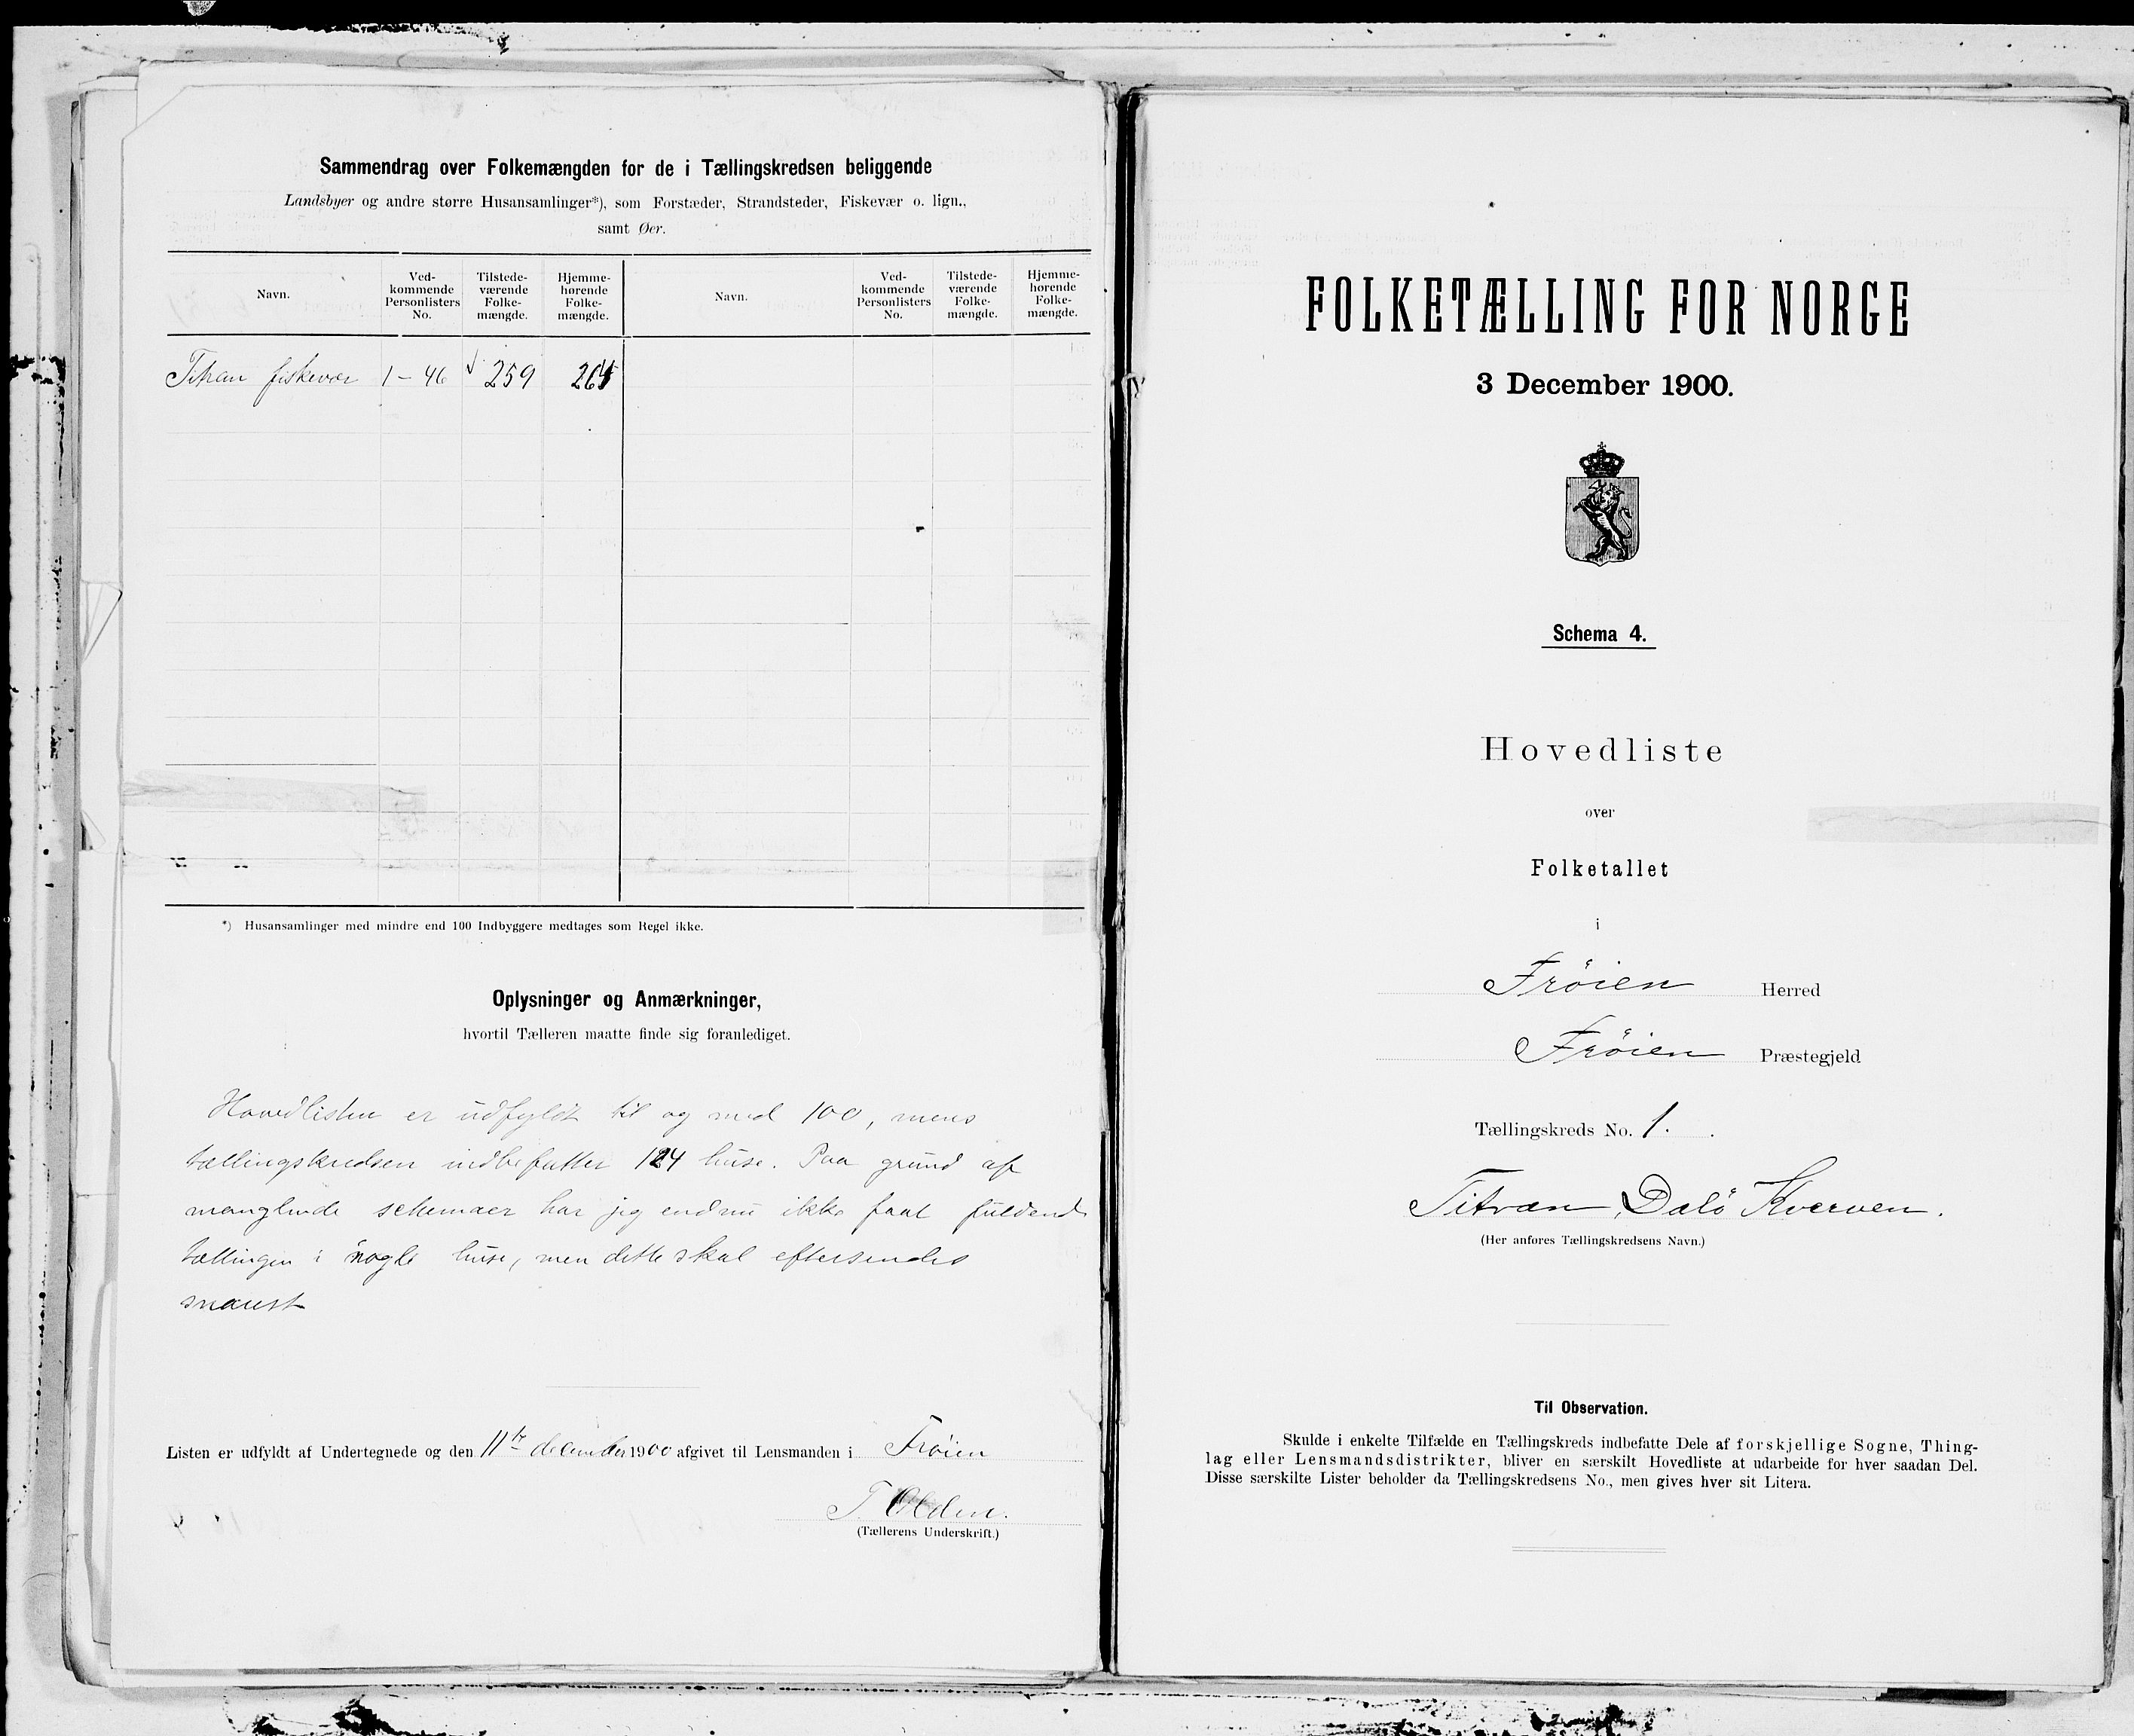 Sammendrag over Folkemængden for de i Tællingskredsen beliggende
Landsbyer og andre større Husansamlinger*), som Forstæder, Strandsteder, Fiskevær o. lign.,
samt Øer.
Navn.
Ved-
kommende
Personlisters
No.
Tilstede-
værende
Folke-
mængde.
Hjemme-
hørende
Folke-
mængde.
Navn.
Ved-
kommende
Personlisters
No.
Tilstede-
værende
Folke-
mængde.
Hjemme-
hørende
Folke-
mængde.
Titran fiskevær 1–46 259
*) Husansamlinger med mindre end 100 Indbyggere medtages som Regel ikke.
Oplysninger og Anmærkninger,
hvortil Tælleren maatte finde sig foranlediget.
Hovedlisten er udfyldt til og med 100, mens
tællingskredsen indbefatter 124 huse. Paa grund af
manglende schemaer har jeg endnu ikke faat fuldendt
tællingen i nogle huse, men dette skal eftersendes
snarest
Listen er udfyldt af Undertegnede og den 11te december 1900 afgivet til Lensmanden i Frøien
T. Olden.
(Tællerens Underskrift.)
FOLKETÆLLING FOR NORGE
3 December 1900.
Schema 4.
Hovedliste
over
Folketallet
i
Frøien Herred
Frøien Præstegjeld
Tællingskreds No. 1.
Titran, Dalö Kverven.
(Her anføres Tællingskredsens Navn.)
Til Observation.
Skulde i enkelte Tilfælde en Tællingskreds indbefatte Dele af forskjellige Sogne, Thing-
lag eller Lensmandsdistrikter, bliver en særskilt Hovedliste at udarbeide for hver saadan Del.
Disse særskilte Lister beholder da Tællingskredsens No., men gives hver sit Litera.